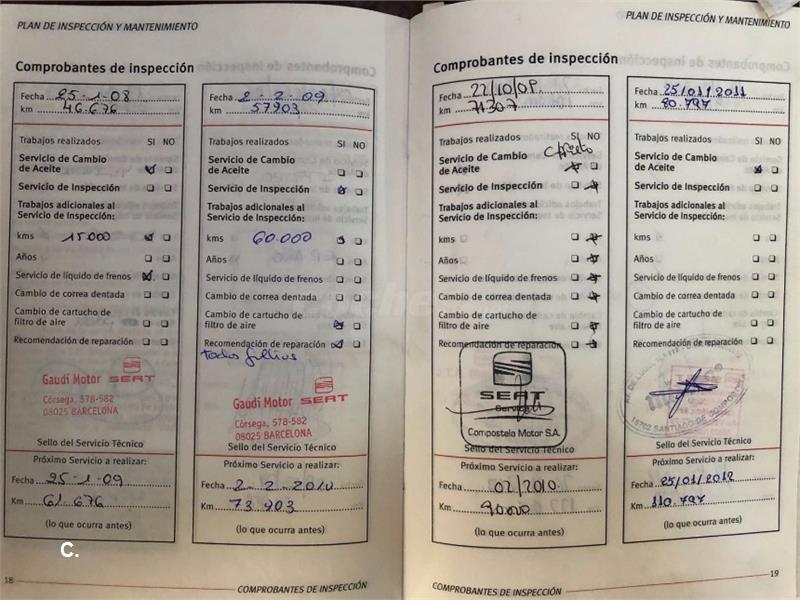 PLAN DE INSPECCIÓN Y MANTENIMIENTO
Comprobantes de inspección
Fecha 25-1-08
km 46.676
Trabajos realizados SI NO
Servicio de Cambio
de Aceite
Servicio de Inspección
Trabajos adicionales al
Servicio de Inspección:
kms 15000
Años
Servicio de líquido de frenos
Cambio de correa dentada
Cambio de cartucho de
filtro de aire
Recomendación de reparación
Gaudí Motor SEAT
Córsega, 578-582
08025 BARCELONA
Sello del Servicio Técnico
Próximo Servicio a realizar:
Fecha 25-1-09
Km 61.676
(lo que ocurra antes)
C.
18
Fecha 2-2-09
km 57903
Trabajos realizados SI NO
Servicio de Cambio
de Aceite
Servicio de Inspección
Trabajos adicionales al
Servicio de Inspección:
kms 60.000
Años
Servicio de líquido de frenos
Cambio de correa dentada
Cambio de cartucho de
filtro de aire
Recomendación de reparación
todos
Gaudí Motor SEAT
Córsega, 578-582
08025 BARCELONA
Sello del Servicio Técnico
Próximo Servicio a realizar:
Fecha 2-2-2010
Km 73903
(lo que ocurra antes)
COMPROBANTES DE INSPECCIÓN
PLAN DE INSPECCIÓN Y MANTENIMIENTO
Comprobantes de inspección
Fecha 22/10/09.
km 71307
Trabajos realizados SI NO
Servicio de Cambio
de Aceite
Servicio de Inspección
Trabajos adicionales al
Servicio de Inspección:
kms
Años
Servicio de líquido de frenos
Cambio de correa dentada
Cambio de cartucho de
filtro de aire
Recomendación de reparación
SEAT
Servicio
Compostela Motor S.A.
Sello del Servicio Técnico
Próximo Servicio a realizar:
Fecha 02/2010.
Km 90000
(lo que ocurra antes)
COMPROBANTES DE INSPECCIÓN
Fecha 25/01/2011
km 80.797
Trabajos realizados SI NO
Servicio de Cambio
de Aceite
Servicio de Inspección
Trabajos adicionales al
Servicio de Inspección:
kms
Años
Servicio de líquido de frenos
Cambio de correa dentada
Cambio de cartucho de
filtro de aire
Recomendación de reparación
15702 SANTIAGO DE COMPOSTELA
Sello del Servicio Técnico
Próximo Servicio a realizar:
Fecha 25/01/2012
Km 110.797
(lo que ocurra antes)
19